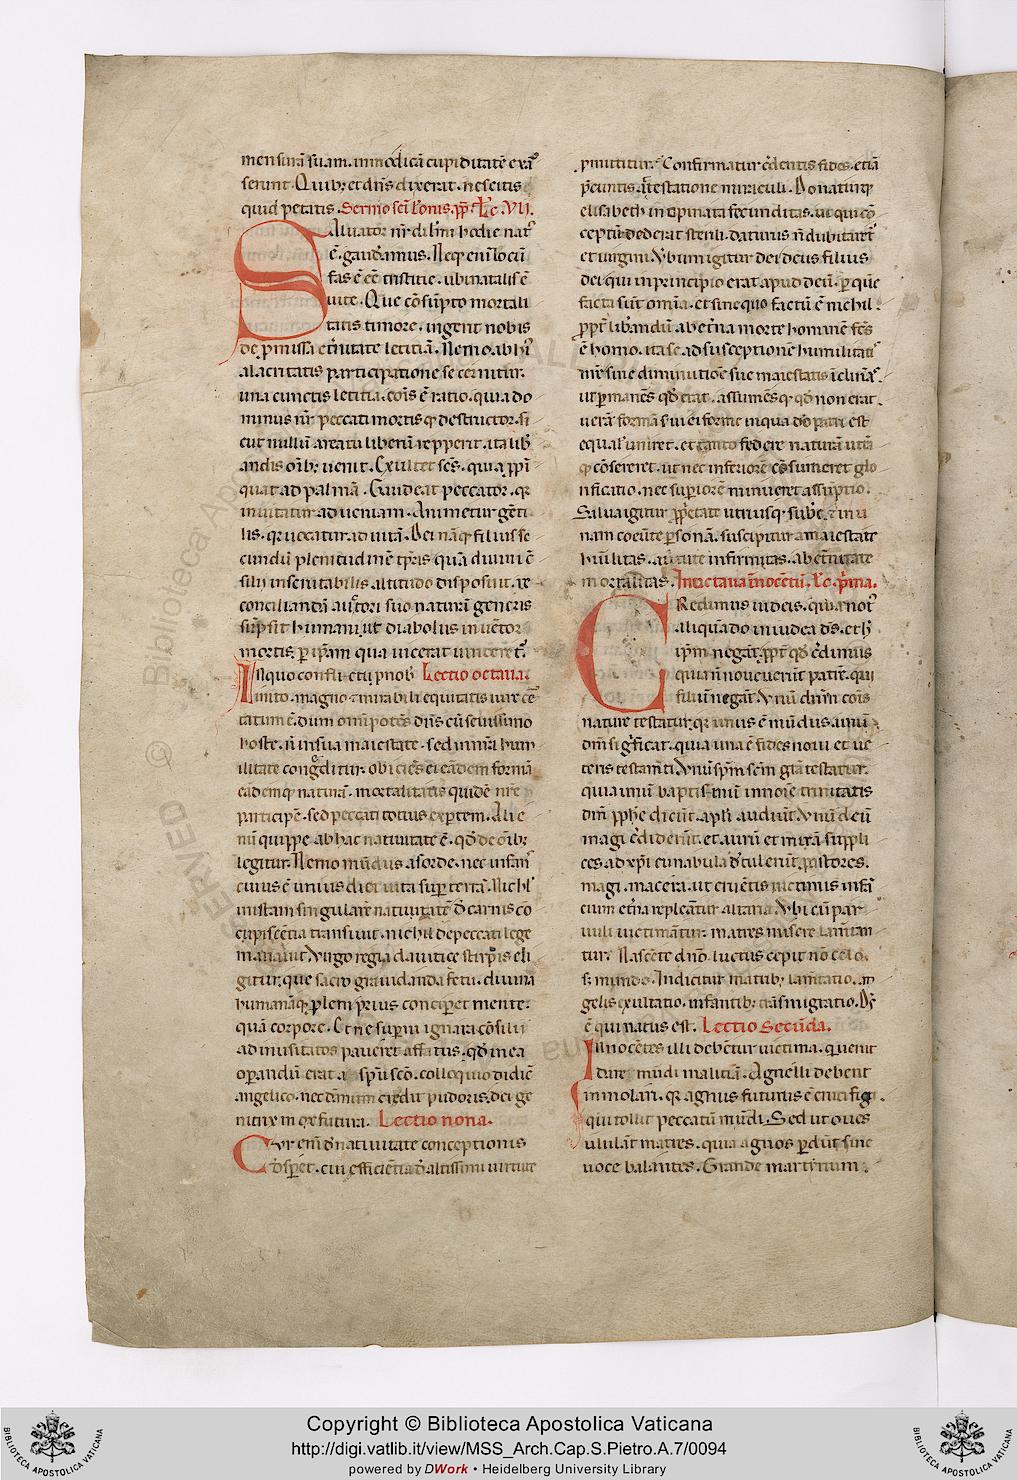 mensurā suam. inmodicā cupiditatē exa
serunt. Quibꝫ et dn̄s dixerat. nescitis
quid petatis. Sermo sc̄i leonis. pp̄. Lc̄. VII.
Saluator nr̄ dilmi hodie nat⁹
ē. gaudeamus. Neqꝫ enī locū
fas ē ēē tristitie. ubi natalis ē
uite. Que cōsūpto mortali
tatis timore. ingerit nobis
de ꝓmissa et̄nitate letitiā. Nemo ab hui⁹
alacritatis participatione secernitur.
una cunctis letitia. cōis ē ratio. quia do
minus nr̄ peccati mortisqꝫ destructor. si
cut nullū a reatu liberū repperit. ita libe
andis oībꝫ uenit. Exultet sc̄s. quia ꝓpi
quat ad palmā. Gaudeat peccator. qr̄
inuitatur ad ueniam. Animetur gēti
lis. qr̄ uocatur ad uitā. Dei nāqꝫ filius se
cundū plenitudinē tꝑris quā diuini ē
silii inscrutabilis altitudo disposuit. re
conciliandā auctori suo naturā generis
sūpsit humani. ut diabolus inuētor
mortis. ꝑ ip̄am quā uicerat uinceret⁊.
In quo conflictu ꝓ nob̄ Lectio octaua.
inito. magno ⁊ mirabili equitatis iure cer
tatum ē. dum om̄ipotēs dn̄s cū seuissimo
hoste. n̄ in sua maiestate. sed in nr̄a hum
ilitate congreditur. obiciēs ei eādem formā
eademqꝫ naturā. mortalitatis quidē nr̄e
participē. sed peccati totius expertem. Alie
nū quippe ab hac natiuitate ē. qd̄ de oībꝫ
legitur. Nemo mūdus a sorde. nec infans
cuius ē unius diei uita suꝑ terrā. Nichil
in istam singularē natiuitatē d̄ carnis co
cupiscētia transiuit. nichil de peccati lege
manauit. Virgo regia dauitice stirpis eli
gitur. que sacro grauidanda fetu. diuinā
humanāqꝫ ꝓlem prius conciꝑet mente.
quā corpore. Et ne suꝑni ignara cōsilii
ad inusitatos paueret affatus. qd̄ in ea
oꝑandū erat a sp̄u sc̄o. colloquio didic̄
angelico. nec damnū credit pudoris. dei ge
nitrix mox futura. Lectio nona.
Cur enī d̄ natiuitate conceptionis
d̄sꝑet. cui efficiētia d̄ altissimi uirtute
ꝓmittitur. Confirmatur credentis fides. etiā
p̄euntis attestatione miraculi. Donaturqꝫ
elisabeth inopinata fecunditas. ut qui cō
ceptū dederat sterili. daturus n̄ dubitaret⁊
et uirgini. Verbum igitur dei deus filius
dei qui in principio erat apud deū. ꝑ quē
facta sūt omīa. et sine quo factū ē nichil.
ꝓpt̄ liberandū ab et̄na morte hominē fc̄s
ē homo. ita se ad susceptionē humilitatis
nr̄e sine diminutiōe sue maiestatis īclinās.
ut ꝑmanēs qd̄ erat. assumēsqꝫ qd̄ non erat.
uerā formā serui ei forme in qua dō patri est
equal' uniret. et tanto federe naturā utrā
qꝫ cōsereret. ut nec inferiorē cōsumeret glo
rificatio. nec suꝑiorē minueret assūptio.
Salua igitur ꝓprietate utriusqꝫ sub̄e. ⁊ in u
nam coeūte ꝑsonā. suscipitur a maiestate
humilitas. a uirtute infirmitas. ab et̄nitate
mortalitas. In octaua īnocētū. Lc̄. prima.
Credimus iudeis. quia not⁹
aliquādo in iudea d̄s. et h̄
ip̄m negāt. ꝓpt̄ qd̄ credimus
quia n̄ nouerunt patrē. qui
filiū negāt. Vnū dn̄m cōis
nature testatur. qr̄ unus ē mūdus. unū
dn̄m significat. quia una ē fides noui et ue
teris testam̄ti. Vnū sp̄m sc̄m gr̄a testatur.
quia unū baptismū in noīe trinitatis
dn̄m ꝓphe dicūt. apl̄i audiūt. Vnū deū
magi crediderūt. et aurū et mirrā suppli
ces ad xp̄i cunabula detulerūt. pastores.
magi. maceria. ut cruētis uictimis infā
cium et̄na repleātur altaria. Vbi cū par
uuli uictimātur. matres misere laniran
tur. Nascēte dn̄o luctus cepit nō celo.
sꝫ mundo. Indicitur matribꝫ lamētatio. an
gelis exultatio. infantibꝫ trāsmigratio. Ds̄
ē qui natus est. Lectio Secūda.
Innocētes illi debētur uictima. q̄ uenit
d̄ūre mūdi malitiā. Agnelli debent
inmolari. qr̄ agnus futurus ē crucifigi
qui tollit peccatū mūdi. Sed ut oues
ululāt matres. quia agnos ꝑdūt sine
uoce balantes. Grande martyrium.
Copyright © Biblioteca Apostolica Vaticana
http://digi.vatlib.it/view/MSS_Arch.Cap.S.Pietro.A.7/0094
powered by DWork • Heidelberg University Library
BIBLIOTECA APOSTOLICA VATICANA
BIBLIOTECA APOSTOLICA VATICANA